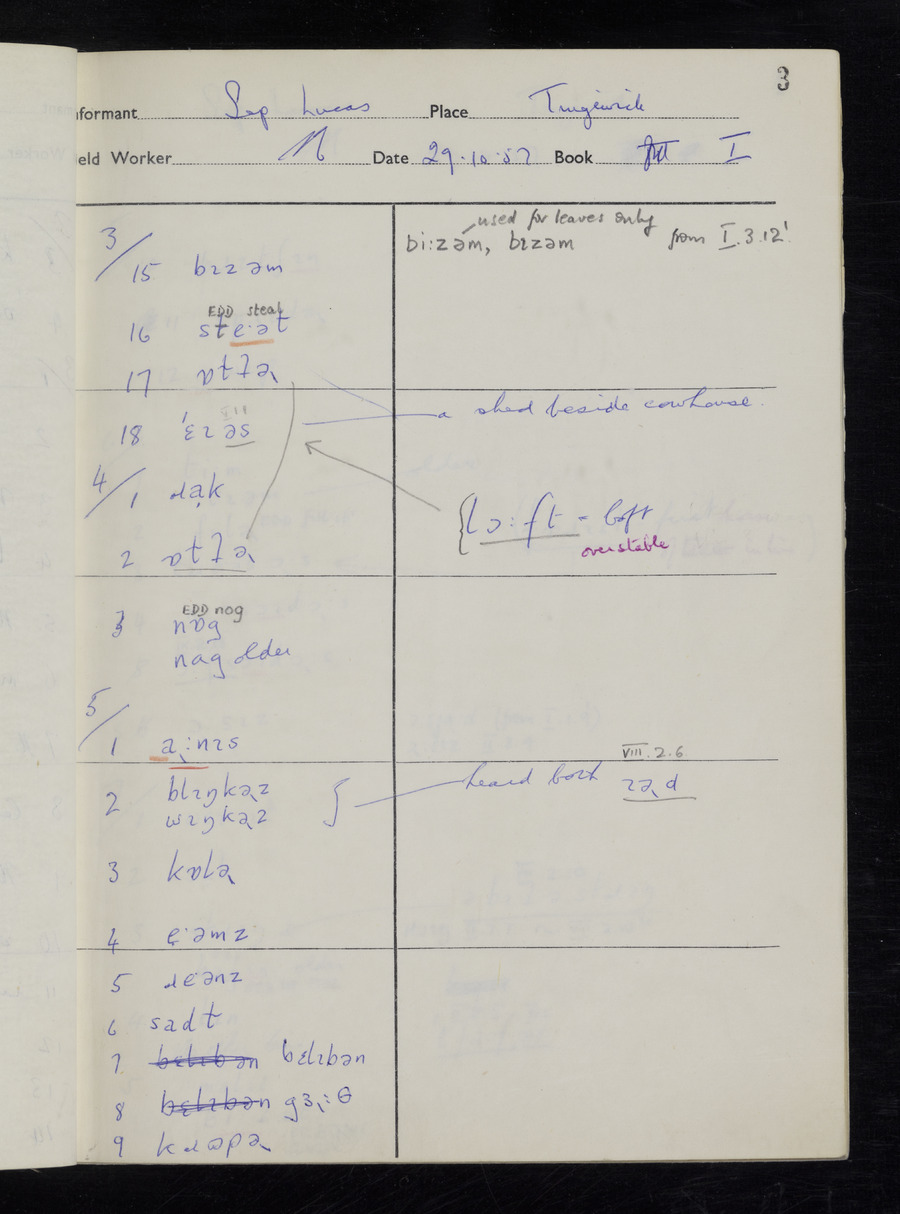 3
nformant Sep Lucas Place Tingewick
eld Worker N Date 29.10.57 Book I
3/
used for leaves only
bi:zəm, bɪzəm from I.3.12'
15 bɪzəm
EDD steal
16 ste·ət
17
a shed beside cowhouse.
18
4/
1 ɹak
{lɔ:ft = loft
over stable
2
EDD nog
3 nɒg
nag older
5/
1 a̜:nɪs
VIII.2.6
2 blɪŋkəz } heard both
wɪŋkəz
3 kɒlə
4 e·əmz
5 ɹe·ənz
6 sadt
7 bɛlɪbən bɛlɪbən
8 bɛlɪbən gɜ:θ
9 kɹɷpə